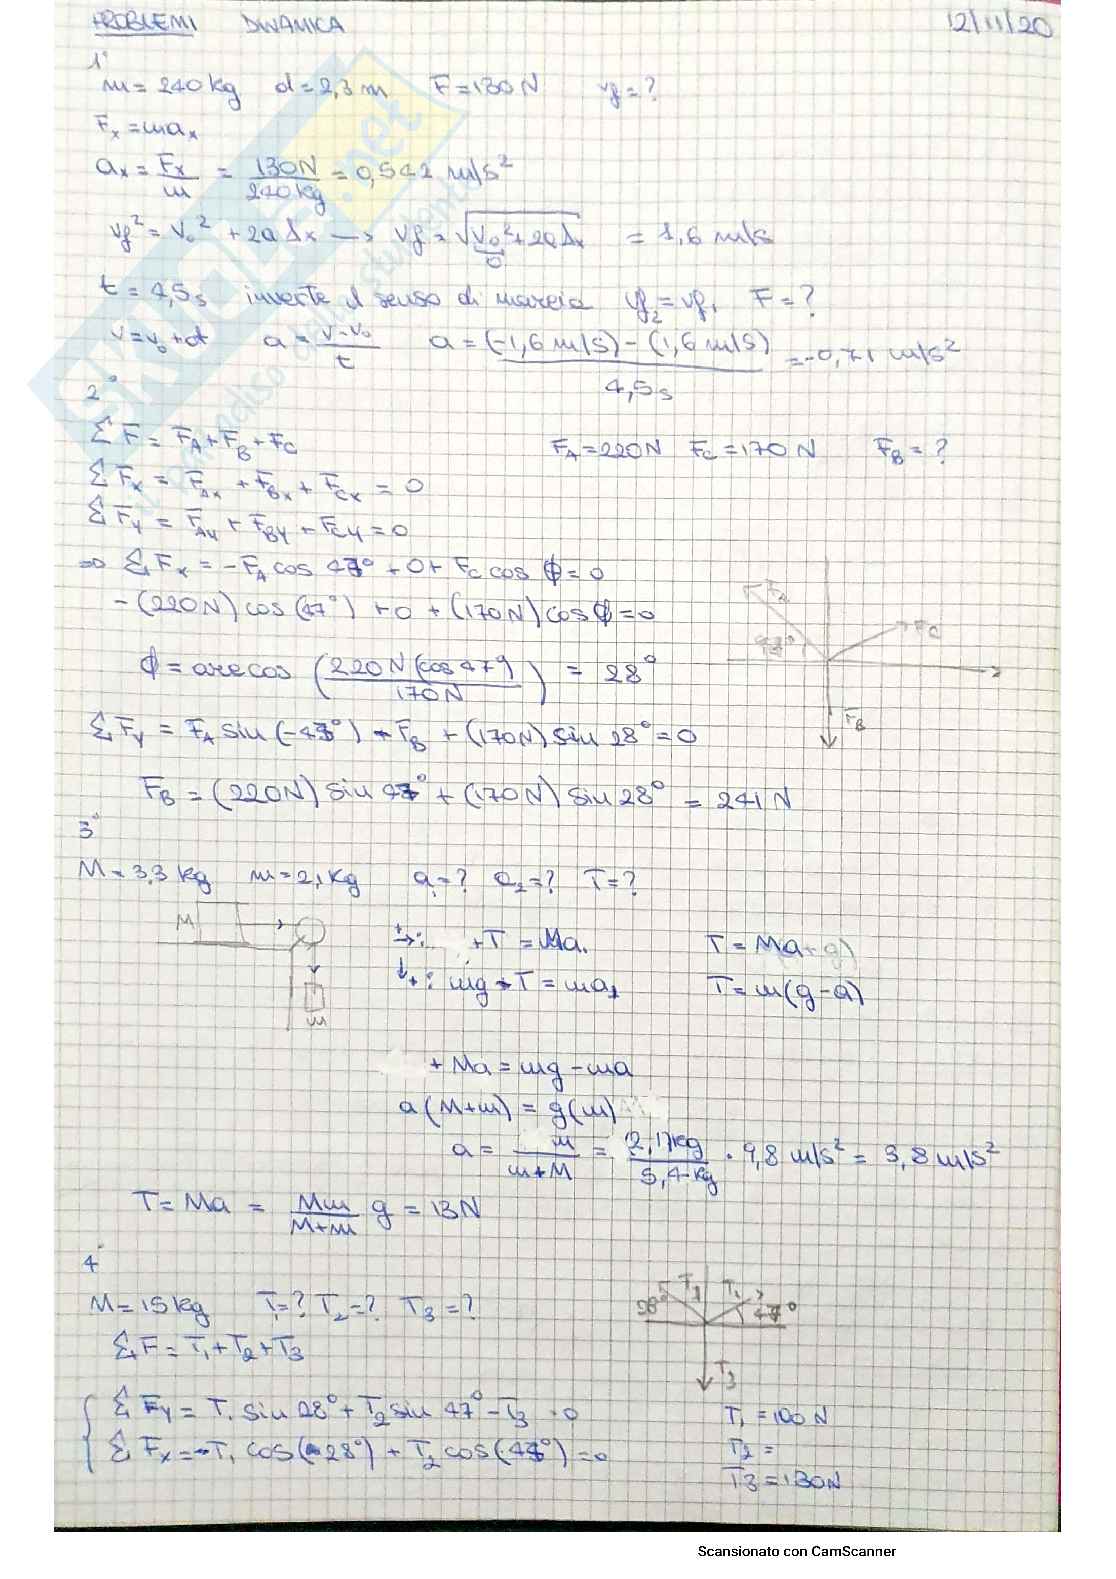 PROBLEMI DINAMICA 12/11/20
1°
m = 240 kg d = 2,3 m F = 130 N vf = ?
Fx = max
ax = Fx/m = 130N/240kg = 0,542 m/s²
vf² = v0² + 2aΔx → vf = √(v0² + 2aΔx) = 1,6 m/s
0
t = 4,5s inverte il senso di marcia vf2 = vf1 F = ?
v = v0 + at a = (v - v0)/t a = ((-1,6 m/s) - (1,6 m/s))/4,5s = -0,71 m/s²
2°
ΣF = FA + FB + FC FA = 220N FC = 170N FB = ?
ΣFx = FAx + FBx + FCx = 0
ΣFy = FAy + FBy + FCy = 0
⇒ ΣFx = -FA cos 47° + 0 + FC cos ϕ = 0
-(220N) cos(47°) + 0 + (170N) cos ϕ = 0
FA FC 47° FB
ϕ = arccos (220N (cos 47°)/170N) = 28°
ΣFy = FA sin(-47°) - FB + (170N) sin 28° = 0
FB = (220N) sin 47° + (170N) sin 28° = 241 N
3°
M = 3,3 kg m = 2,1 kg a1 = ? a2 = ? T = ?
M m
→+: +T = Ma. T = Ma
↓+: mg - T = ma1 T = m(g - a)
+ Ma = mg - ma
a(M+m) = g(m)
a = m/(m+M) = (2,1)kg/5,4 kg · 9,8 m/s² = 3,8 m/s²
T = Ma = Mm/(M+m) g = 13N
4°
M = 15 kg T1 = ? T2 = ? T3 = ?
28° 47° T3
ΣF = T1 + T2 + T3
ΣFy = T1 sin 28° + T2 sin 47° - T3 = 0 T1 = 100 N
ΣFx = -T1 cos(-28°) + T2 cos(47°) = 0 T2 =
T3 = 130N
SKUOLA.net
Scansionato con CamScanner